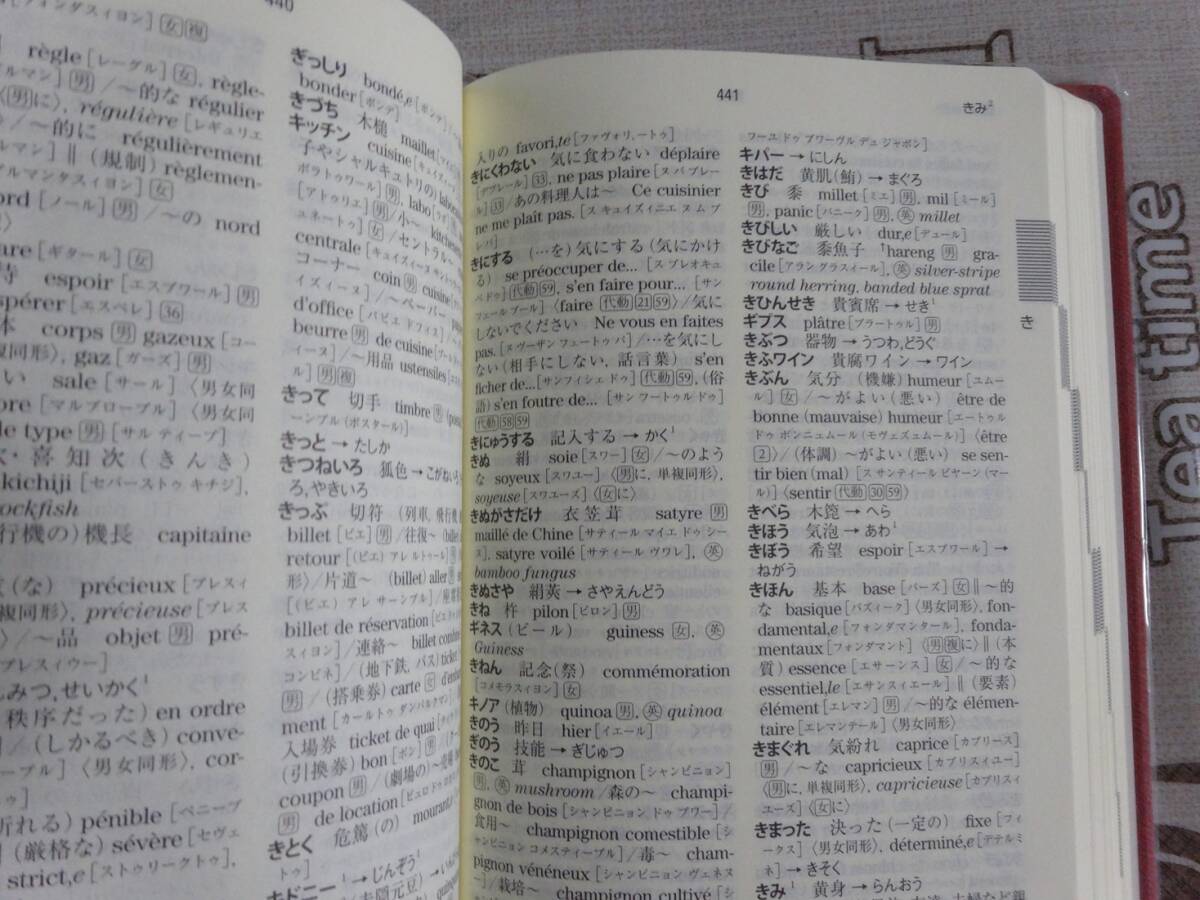 440
[フォンダスィヨン] 女複
règle [レーグル] 女, règle-
男 / 〜的な régulier
〈男に〉, régulière [レギュリエ
〉/ 〜的に régulièrement
‖ (規制) règlemen-
ord [ノール] 男 / 〜の nord
are [ギタール] 女
espoir [エスプワール] 男
spérer [エスペレ] 36
corps 男 gazeux [コー
複同形〉, gaz [ガーズ] 男
い sale [サール] 〈男女同
[マルプロープル] 〈男女同
de type 男 [サル ティープ]
・喜知次 (きんき)
kichiji [セバーストゥ キチジ],
rockfish
行機の) 機長 capitaine
(な) précieux [プレスィ
複同形〉, précieuse [プレス
〉/ 〜品 objet 男 pré-
プレスィウー]
んみつ, せいかく¹
秩序だった) en ordre
/ (しかるべき) conve-
〈男女同形〉, cor-
折れる) pénible [ペニーブ
(厳格な) sévère [セヴェ
strict,e [ストゥリークトゥ],
ぎっしり bondé,e [ボンデ]
bonder [ボンデ]
きづち 木槌 maillet
キッチン cuisine
子やシャルキュトリの) labora
ボラトゥワール] 男, labo
[アトゥリエ] 男 / 小〜 kitchen
ュネートゥ] 女 / セントラル〜
centrale
コーナー coin 男 cuisine
イズィーヌ] / 〜ペーパー
d'office [パピエ ドフィス]
beurre 男 de cuisine
ーヌ] / 〜用品 ustensiles
ル] 男複
きって 切手 timbre 男
ーンブル (ポスタール)]
きっと → たしか
きつねいろ 狐色 → こがねい
ろ, やきいろ
きっぷ 切符 (列車, 飛行機
billet [ビエ] 男 / 往復〜
retour [(ビエ) アレ ルトゥール]
形〉/ 片道〜 (billet) aller
[(ビエ) アレ サーンプル] /
billet de réservation
スィヨン] / 連絡〜 billet combin
コンビネ] / (地下鉄, バス) ticket
男 / (搭乗券) carte 女
ment [カールトゥ ダンバルクマン]
入場券 ticket de quai
(引換券) bon [ボン] 男 /
coupon 男 / (劇場の)
男 de location
きとく 危篤 (の) mourant
トゥ]
キドニー¹ → じんぞう¹
441
きみ²
入りの favori,te [ファヴォリ, ートゥ]
きにくわない 気に食わない déplaire
[デプレール] 33, ne pas plaire [ヌ パ プレー
ル] 33 / あの料理人は〜 Ce cuisinier
ne me plaît pas. [ス キュイズィニエ ヌ ム プ
レ パ]
きにする (…を) 気にする (気にかけ
る) se préoccuper de... [ス プレオキュ
ペ ドゥ] 代動59, s'en faire pour... [サン
フェール プール] 〈faire 代動2159〉/ 気に
しないでください Ne vous en faites
pas. [ヌ ヴーザン フェートゥ パ] / …を気にし
ない (相手にしない, 話言葉) s'en
ficher de... [サンフィシェ ドゥ] 代動59, (俗
語) s'en foutre de... [サン フートゥル ドゥ]
代動5859
きにゅうする 記入する → かく¹
きぬ 絹 soie [スワー] 女 / 〜のよう
な soyeux [スワユー] 〈男に, 単複同形〉,
soyeuse [スワユーズ] 〈女に〉
きぬがさだけ 衣笠茸 satyre 男
maillé de Chine [サティール マイエ ドゥ シー
ヌ], satyre voilé [サティール ヴワレ], 英
bamboo fungus
きぬさや 絹莢 → さやえんどう
きね 杵 pilon [ピロン] 男
ギネス (ビール) guiness 女, 英
Guiness
きねん 記念 (祭) commémoration
[コメモラスィヨン] 女
キノア (植物) quinoa 男, 英 quinoa
きのう 昨日 hier [イエール]
ぎのう 技能 → ぎじゅつ
きのこ 茸 champignon [シャンピニョン]
男, 英 mushroom / 森の〜 champi-
gnon de bois [シャンピニョン ドゥ ブワー] /
食用〜 champignon comestible [シャ
ンピニョン コメスティーブル] / 毒〜 cham-
pignon vénéneux [シャンピニョン ヴェネヌ
ー] / 栽培〜 champignon cultivé [シャ
フーユ ドゥ プワーヴル デュ ジャポン]
キパー → にしん
きはだ 黄肌 (鮪) → まぐろ
きび 黍 millet [ミエ] 男, mil [ミール]
男, panic [パニーク] 男, 英 millet
きびしい 厳しい dur,e [デュール]
きびなご 黍魚子 †hareng 男 gra-
cile [アラン グラスィール], 英 silver-stripe
round herring, banded blue sprat
きひんせき 貴賓席 → せき¹
ギプス plâtre [プラートゥル] 男
きぶつ 器物 → うつわ, どうぐ
きふワイン 貴腐ワイン → ワイン
きぶん 気分 (機嫌) humeur [ユムー
ル] 女 / 〜がよい (悪い) être de
bonne (mauvaise) humeur [エートゥル
ドゥ ボンニュムール (モヴェズュムール)] 〈être
2〉 / (体調) 〜がよい (悪い) se sen-
tir bien (mal) [ス サンティール ビヤーン (マー
ル)] 〈sentir 代動3059〉
きべら 木箆 → へら
きほう 気泡 → あわ¹
きぼう 希望 espoir [エスプワール] →
ねがう
きほん 基本 base [バーズ] 女 ‖ 〜的
な basique [バズィーク] 〈男女同形〉, fon-
damental,e [フォンダマンタール], fonda-
mentaux [フォンダマント] 〈男複に〉 ‖ (本
質) essence [エサーンス] 女 / 〜的な
essentiel,le [エサンスィエール] ‖ (要素)
élément [エレマン] 男 / 〜的な élémen-
taire [エレマンテール] 〈男女同形〉
きまぐれ 気紛れ caprice [カプリース]
男 / 〜な capricieux [カプリスィユー]
〈男に, 単複同形〉, capricieuse [カプリスィ
ユーズ] 〈女に〉
きまった 決った (一定の) fixe [フィ
ークス] 〈男女同形〉, déterminé,e [デテルミ
ネ] → きそく
きみ¹ 黄身 → らんおう
き
Tea time